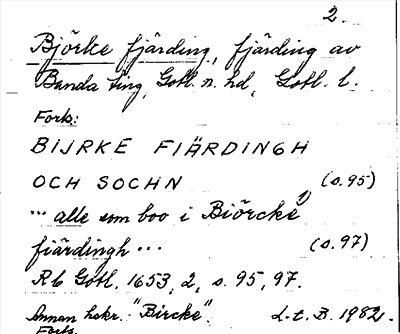 2.
Björke fjärding, fjärding av
Banda ting, Gotl. n. hd, Gotl. l.
Forts:
BIJRKE FIÄRDINGH
OCH SOCHN (s.95)
... alle som boo i Biörcke 1)
fiärdingh ... (s.97)
Rb Gotl. 1653, 2, s. 95, 97.
Annan hskr. "Bircke". L.t.B. 1982.
Forts.